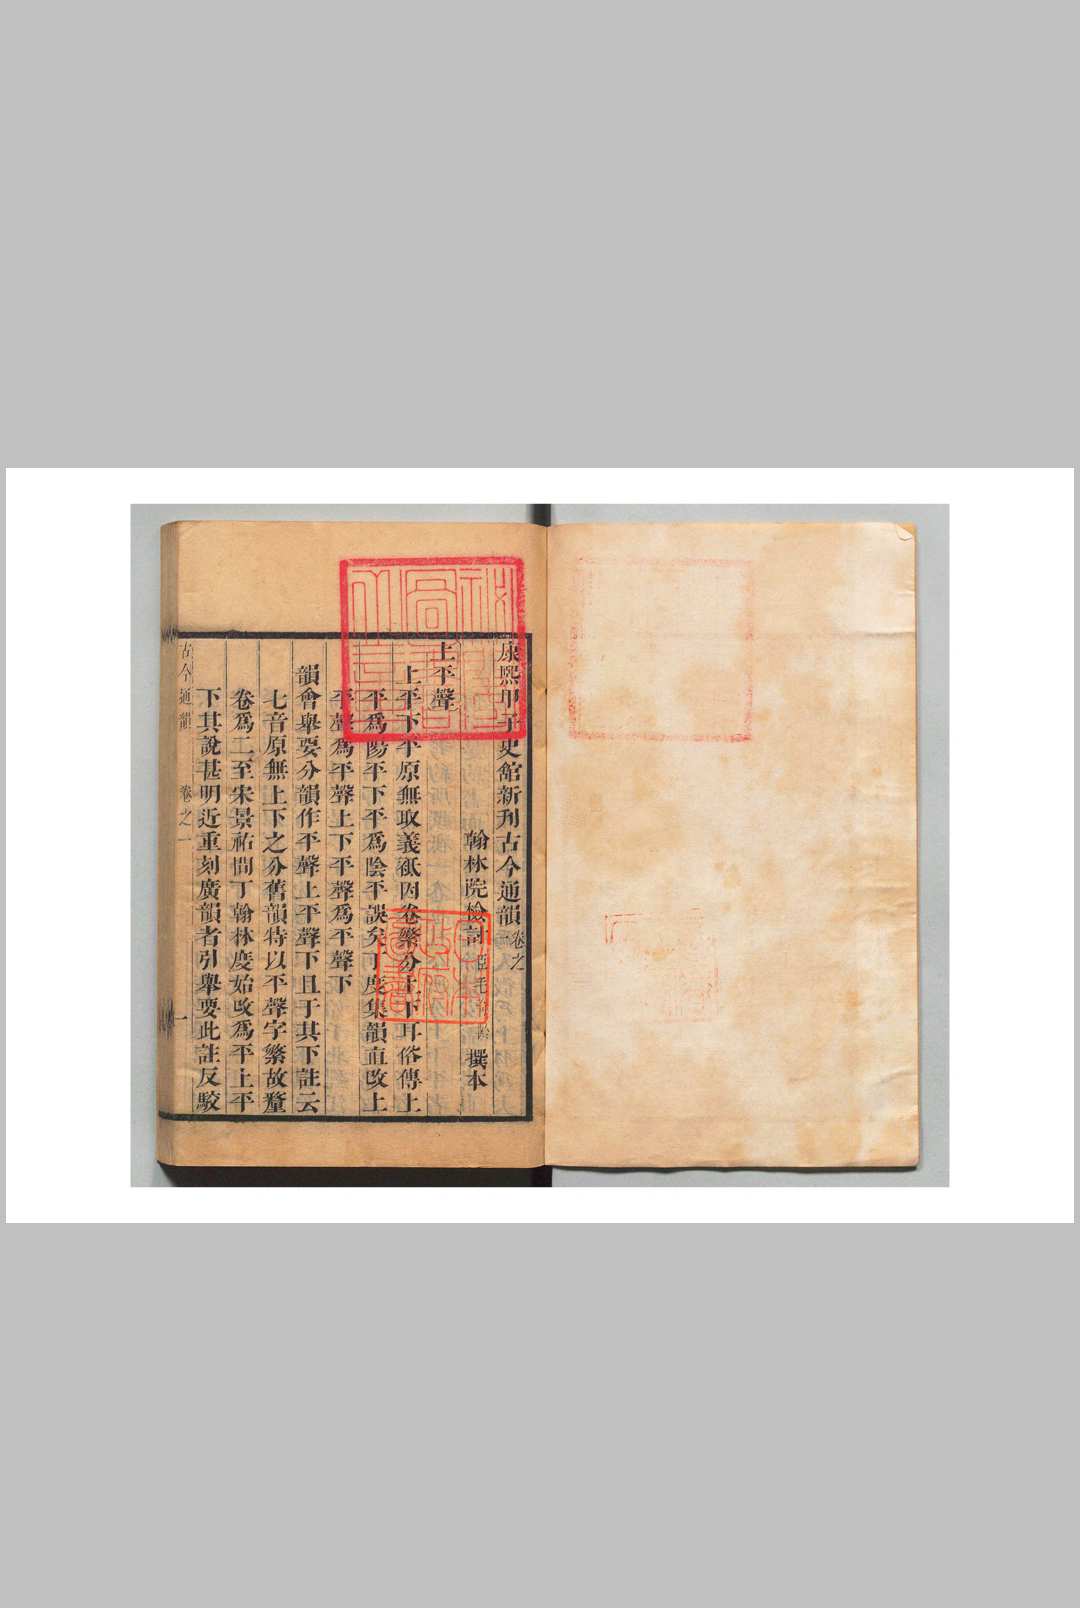 康熙甲子史館新刊古今通韻卷之
翰林院檢討臣毛奇齡撰本
上平聲
上平下平原無取義祇因卷繁分上下耳俗傳上
平爲陽平下平爲陰平誤矣丁度集韻直改上
平聲爲平聲上下平聲爲平聲下
韻會舉要分韻作平聲上平聲下且于其下註云
七音原無上下之分舊韻特以平聲字繁故釐
卷爲二至宋景祐間丁翰林度始改爲平上平
下其說甚明近重刻廣韻者引舉要此註反駮
古今通韻 卷之一 一